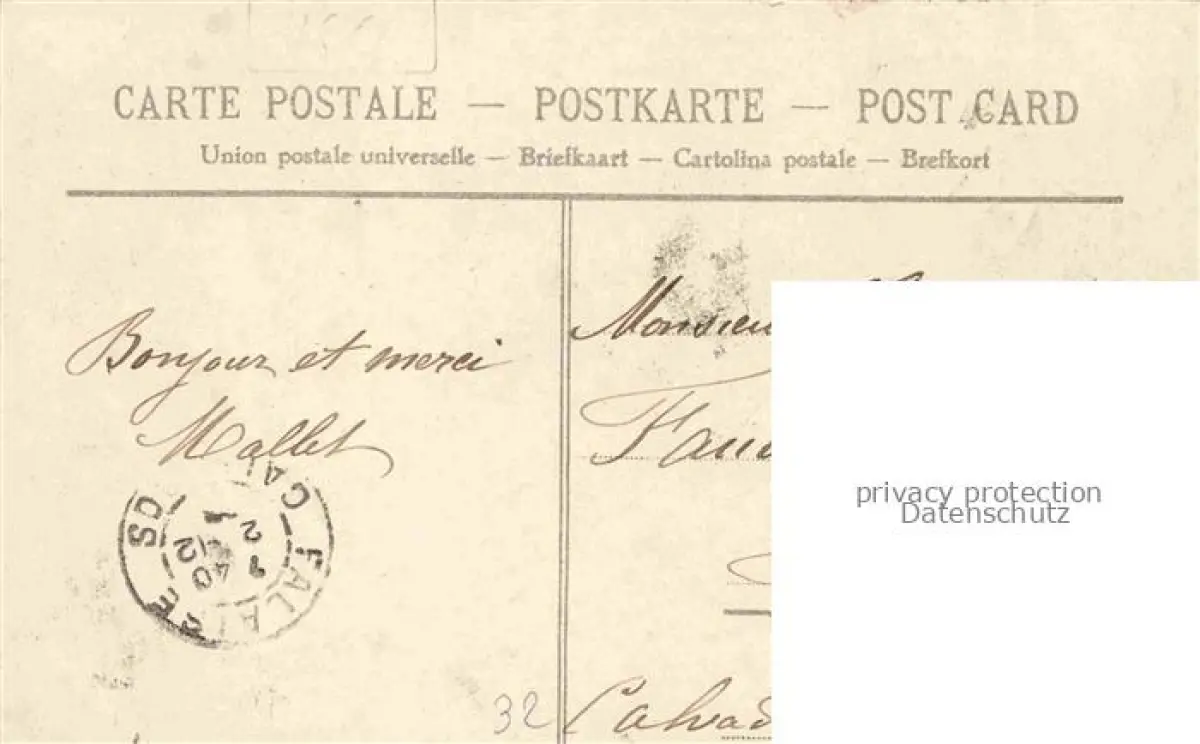 CARTE POSTALE — POSTKARTE — POST CARD
Union postale universelle — Briefkaart — Cartolina postale — Brefkort
Bonjour et merci
Mallet
FALAISE
CA
2
40
12
32
Monsieu
Calvad
privacy protection
Datenschutz